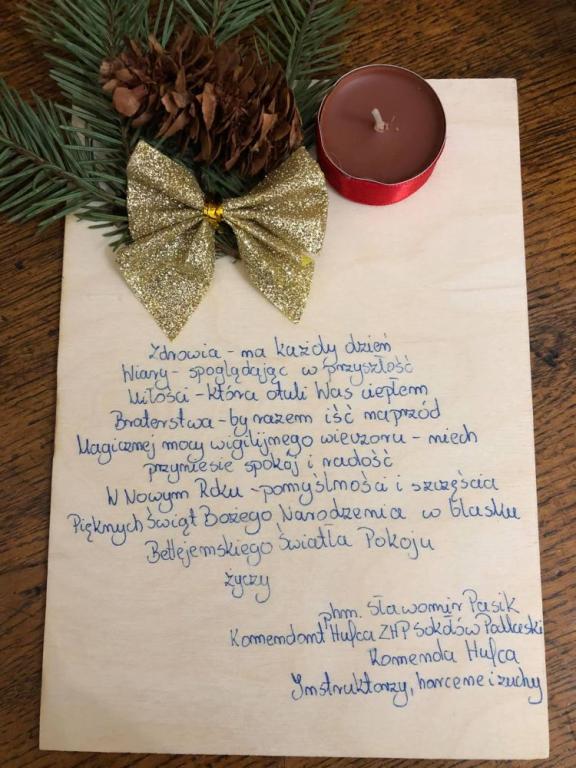 Zdrowia - na każdy dzień
Wiary - spoglądając w przyszłość
Miłości - która otuli Was ciepłem
Braterstwa - by razem iść naprzód
Magicznej mocy wigilijnego wieczoru - niech
przyniesie spokój i radość
W Nowym Roku - pomyślności i szczęścia
Pięknych Świąt Bożego Narodzenia w blasku
Betlejemskiego Światła Pokoju
życzy
phm. Sławomir Pasik
Komendant Hufca ZHP Sokołów Podlaski
Komenda Hufca
Instruktorzy, harcerze i zuchy